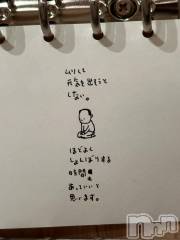 ムリして
元気を出そうと
しない。
ほどよく
しょんぼりする
時間も
あっていいと
思います。